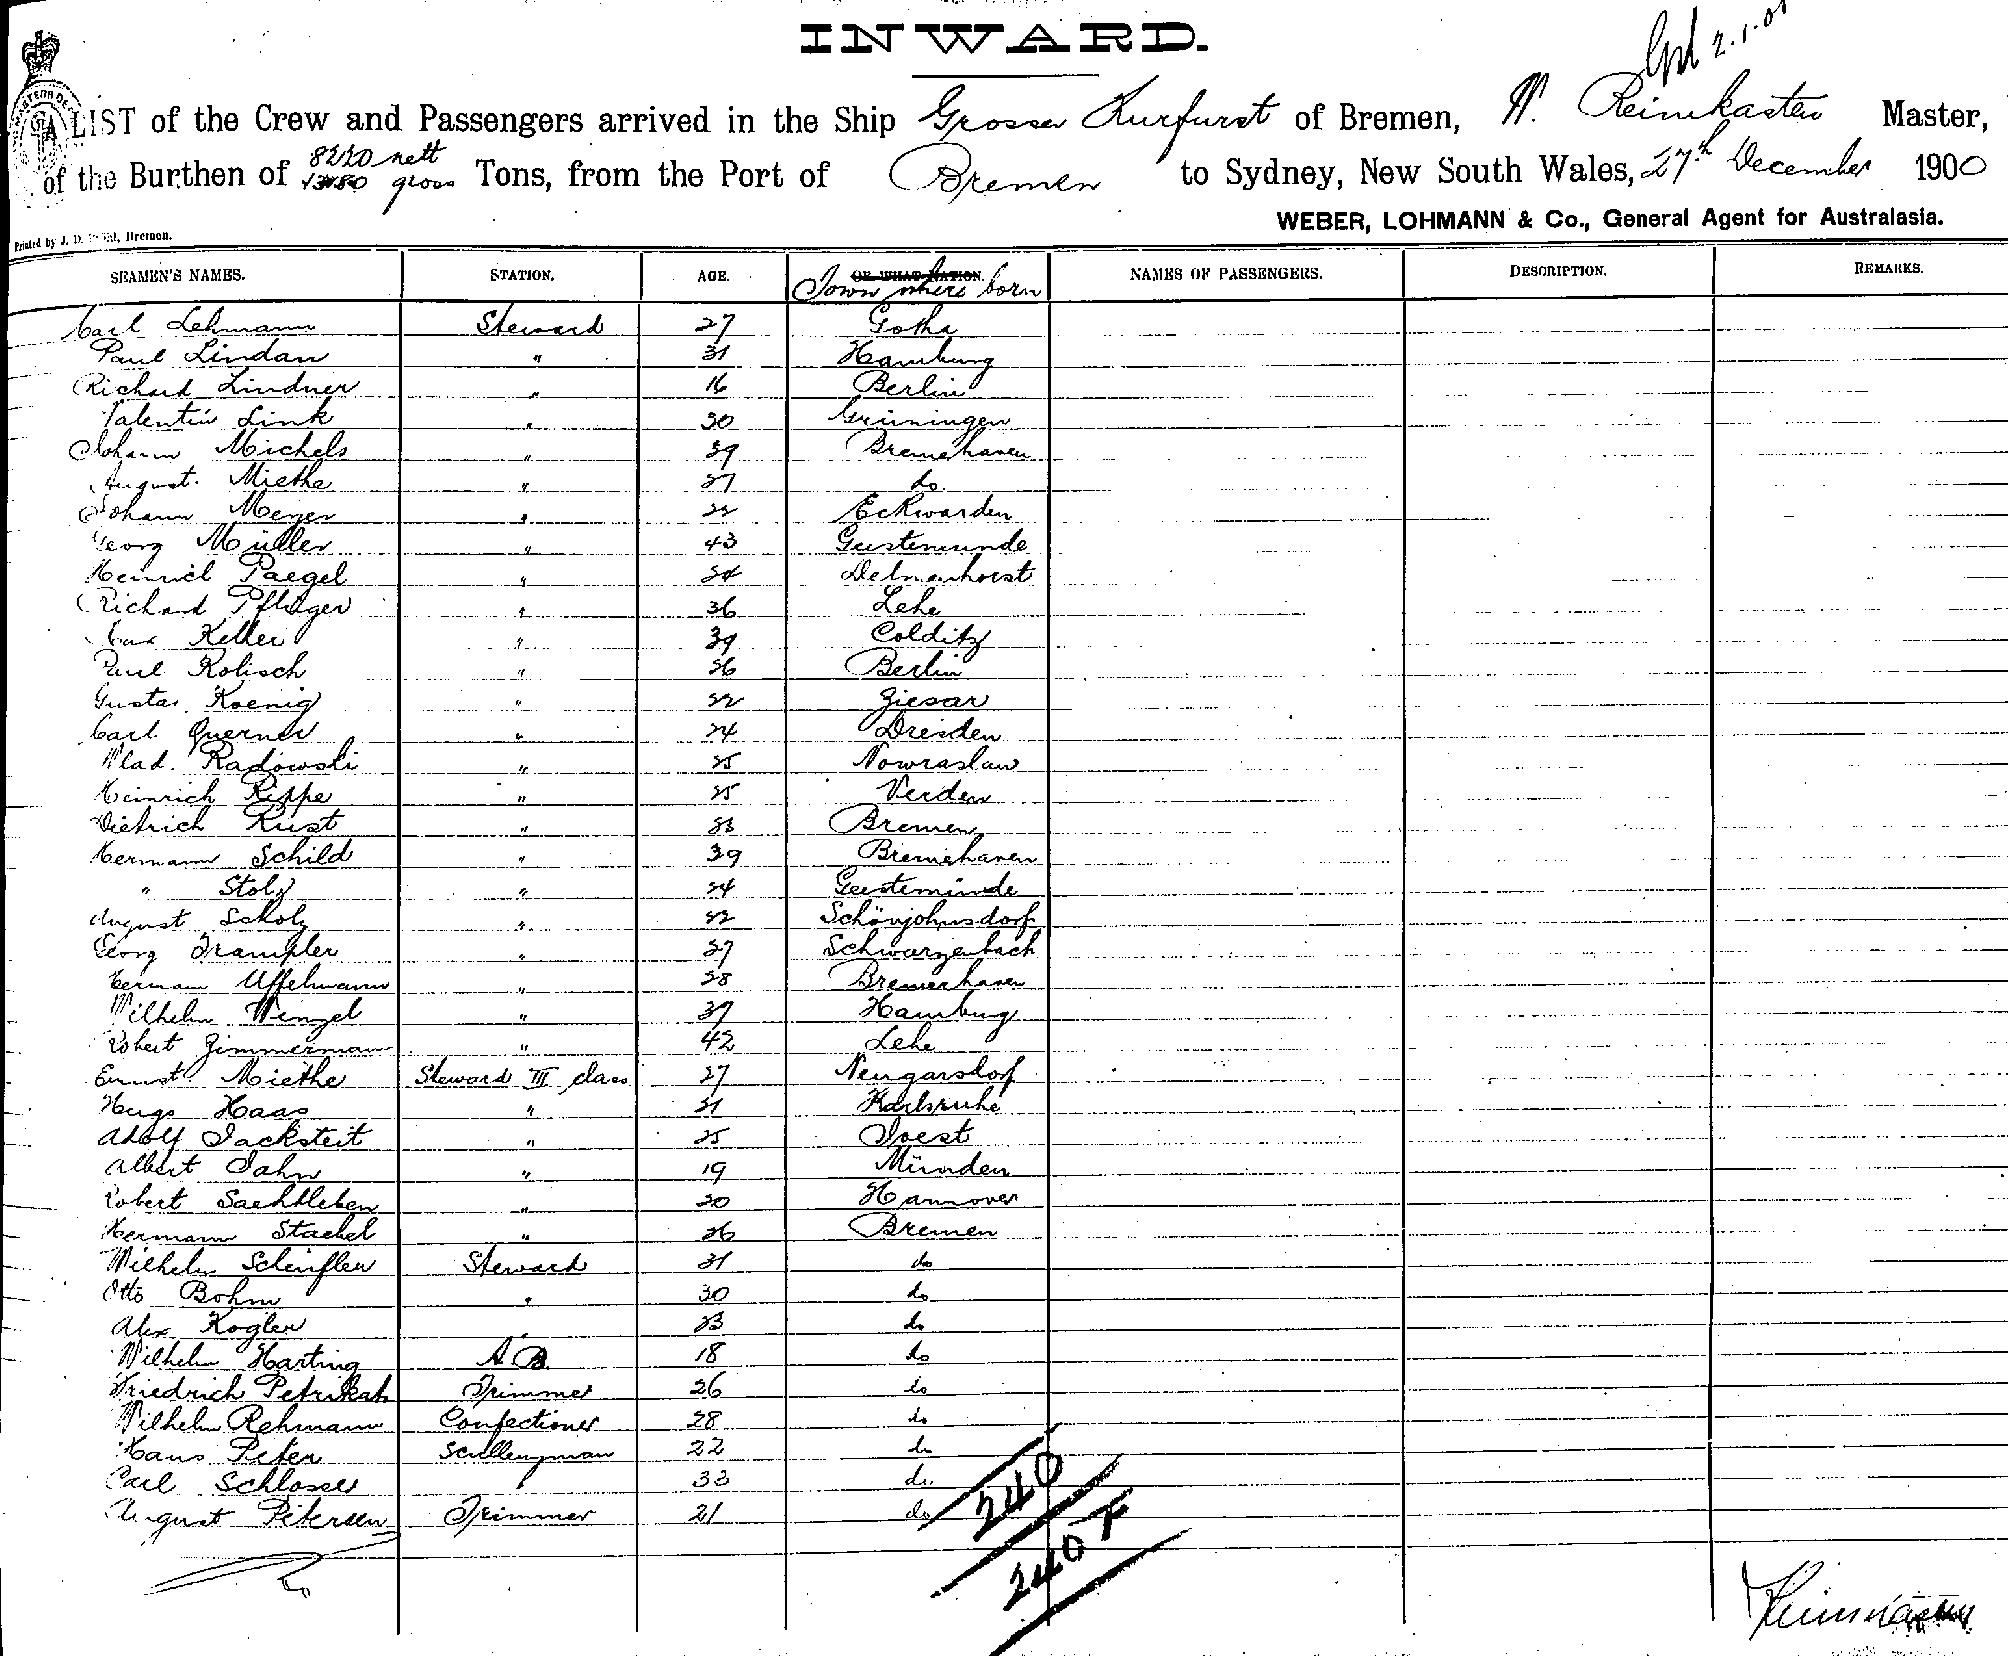 INWARD.
2.1.01
LIST of the Crew and Passengers arrived in the Ship Grosser Kurfurst of Bremen, Reimkasten Master,
of the Burthen of 8220 nett gross Tons, from the Port of Bremen to Sydney, New South Wales, 27th December 1900
WEBER, LOHMANN & Co., General Agent for Australasia.
Printed by J. D. Bremen.
SEAMEN'S NAMES. STATION. AGE. OF WHAT NATION. NAMES OF PASSENGERS. DESCRIPTION. REMARKS.
Town where born
Carl Lehmann Steward 27 Gotha
Paul Lindau " 31 Hamburg
Richard Lindner " 16 Berlin
Valentin Link " Grüningen
Johann Michels " Bremehaven
August Miethe " do
Johann Meyer " Eckwarden
Georg Müller " 43 Geestemunde
Heinrich Paegel " Delmenhorst
Richard Pflüger " 36 Lehe
Keller " 39 Colditz
Paul Kolisch " 26 Berlin
Gustav Koenig " 22 Ziesar
Carl Querner " 24 Dresden
Wlad. Radowski " 25 Nowraslaw
Heinrich Rippe " 25 Verden
Dietrich Rust " Bremen
Hermann Schild " 39 Bremehaven
" Stolz " 24 Geestemünde
August Scholz " 22 Schönjohnsdorf
Georg Trampler " 27 Schwarzenbach
Herman Uffelmann " 28 Bremerhaven
Wilhelm Wenzel " 37 Hamburg
Robert Zimmermann " 42 Lehe
Ernst Miethe Steward III class 27 Neugarsdorf
Hugo Haas " 21 Karlsruhe
Adolf Jacksteit " 25 Soest
Albert Jahn " 19 Münden
Robert Saehtleben " 20 Hannover
Hermann Stachel " 26 Bremen
Wilhelm Scheiflen Steward 31 do
Otto Bohm " 30 do
Alex Kogler " 23 do
Wilhelm Harting A B. 18 do
Friedrich Petrikat Trimmer 26 do
Wilhelm Rehmann Confectioner 28 do
Hans Peter Sculleryman 22 do
Carl Schlosser " 33 do
August Petersen Trimmer 21 do
240
240
Reimkasten